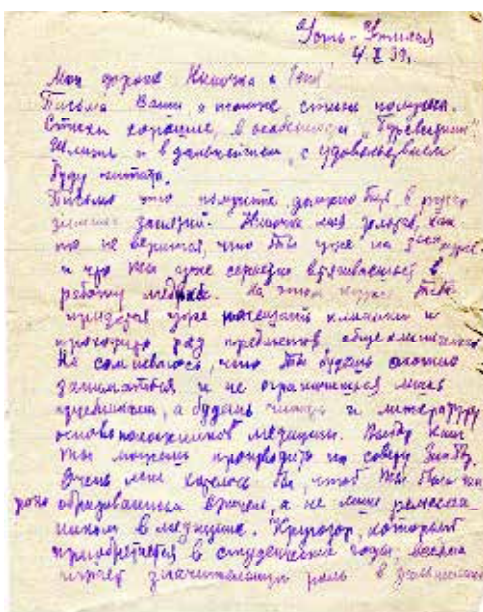 Усть-Усмая
4.X.39.
Мои дорогие Ниночка и
Письма Ваши, а также стихи получила.
Стихи хорошие, в особенности "Буревестник"
Шлите и в дальнейшем, с удовольствием
буду читать.
Письмо это получите, должно быть, в разгар
зимних занятий. Ниночка моя золотая, как
то не верится, что ты уже на
и что ты уже серьезно втягиваешься в
работу медика. На этом курсе тебе
придется уже посещать клиники и
проходить ряд предметов,
Не сомневаюсь, что ты будешь охотно
заниматься и не ограничишься лишь
учебниками, а будешь читать и литературу
основоположников медицины. Выбор книг
ты можешь производить по совету
Очень мне хотелось бы, чтоб ты была
образованным врачем, а не лишь ремеслен
ником в медицине. Кругозор, который
приобретается в студенческие годы, весьма
играет значительную роль в